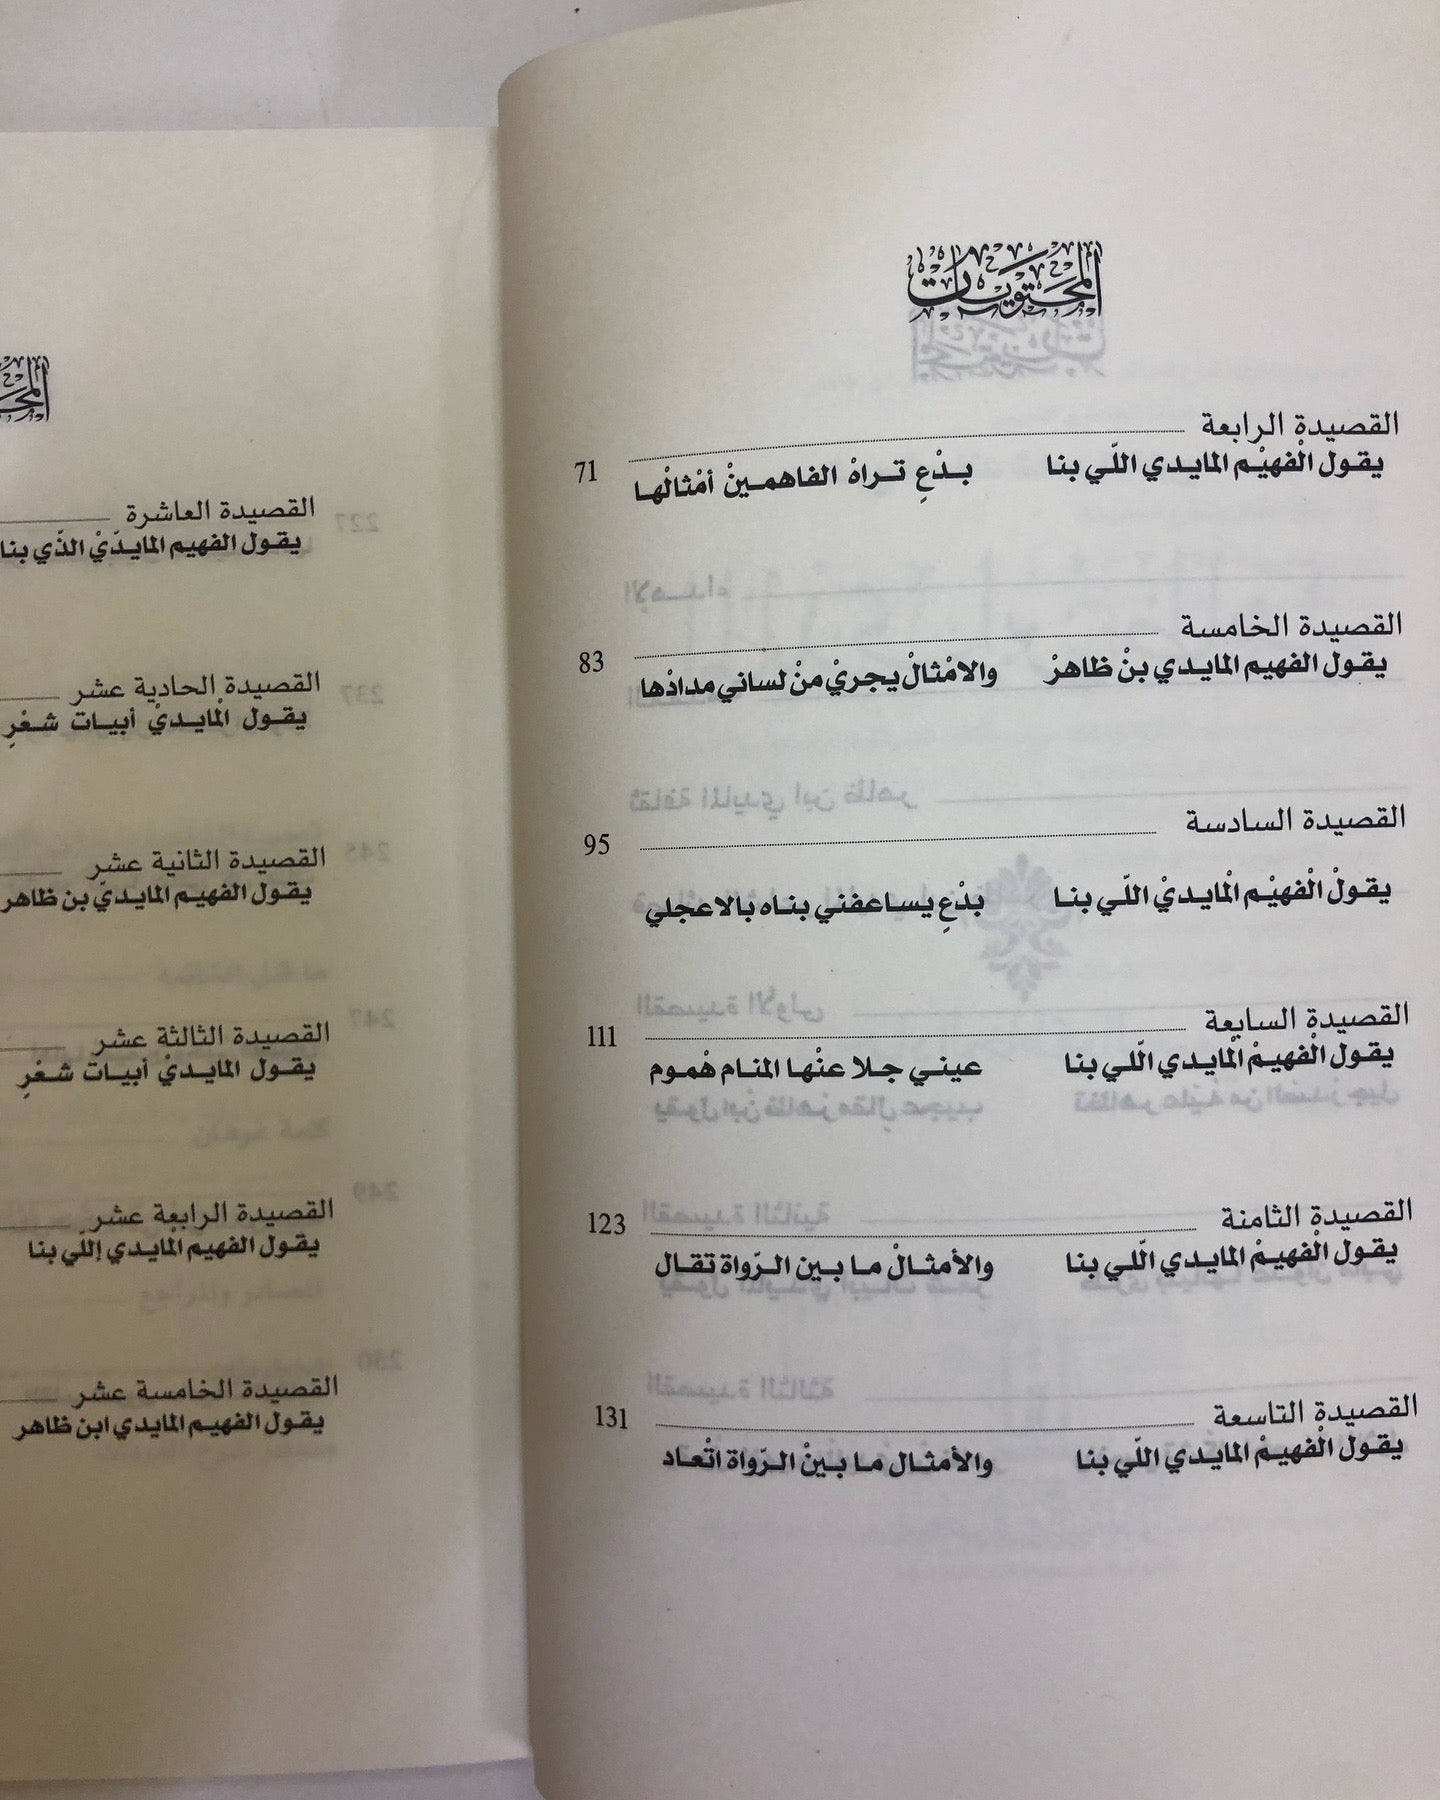 المحتويات
القصيدة الرابعة
يقول الْفهيْم المايدي اللّي بنا بدْعِ تراهْ الفاهمينْ أمْثالْها 71
القصيدة الخامسة
يقول الفهيم المايدي بنْ ظاهرْ والامْثالْ يجريْ منْ لساني مدادْها 83
القصيدة السادسة 95
يقولْ الْفهيْم الْمايديْ اللّي بنا بدْعِ يساعفني بناه بالاعجلي
القصيدة السابعة 111
يقول الْفهيمْ الْمايدي الّلي بنا عيني جلا عنْها المنام هْموم
القصيدة الثامنة 123
يقول الْفهيمْ المايدي الّلي بنا والأمثالْ ما بين الرّواة تقال
القصيدة التاسعة 131
يقول الْفهيمْ المايدي اللّي بنا والأمثال ما بينْ الرّواة اتْعاد
القصيدة العاشرة
يقول الفهيم المايدّيْ الذّي بنا
القصيدة الحادية عشر
يقول الْمايديْ أبيات شعْرِ
القصيدة الثانية عشر
يقول الفهيم المايديّ بن ظاهر
القصيدة الثالثة عشر
يقول المايديْ أبيات شعْرِ
القصيدة الرابعة عشر
يقول الفهيم المايدي إللّي بنا
القصيدة الخامسة عشر
يقول الفهيم المايدي ابن ظاهر